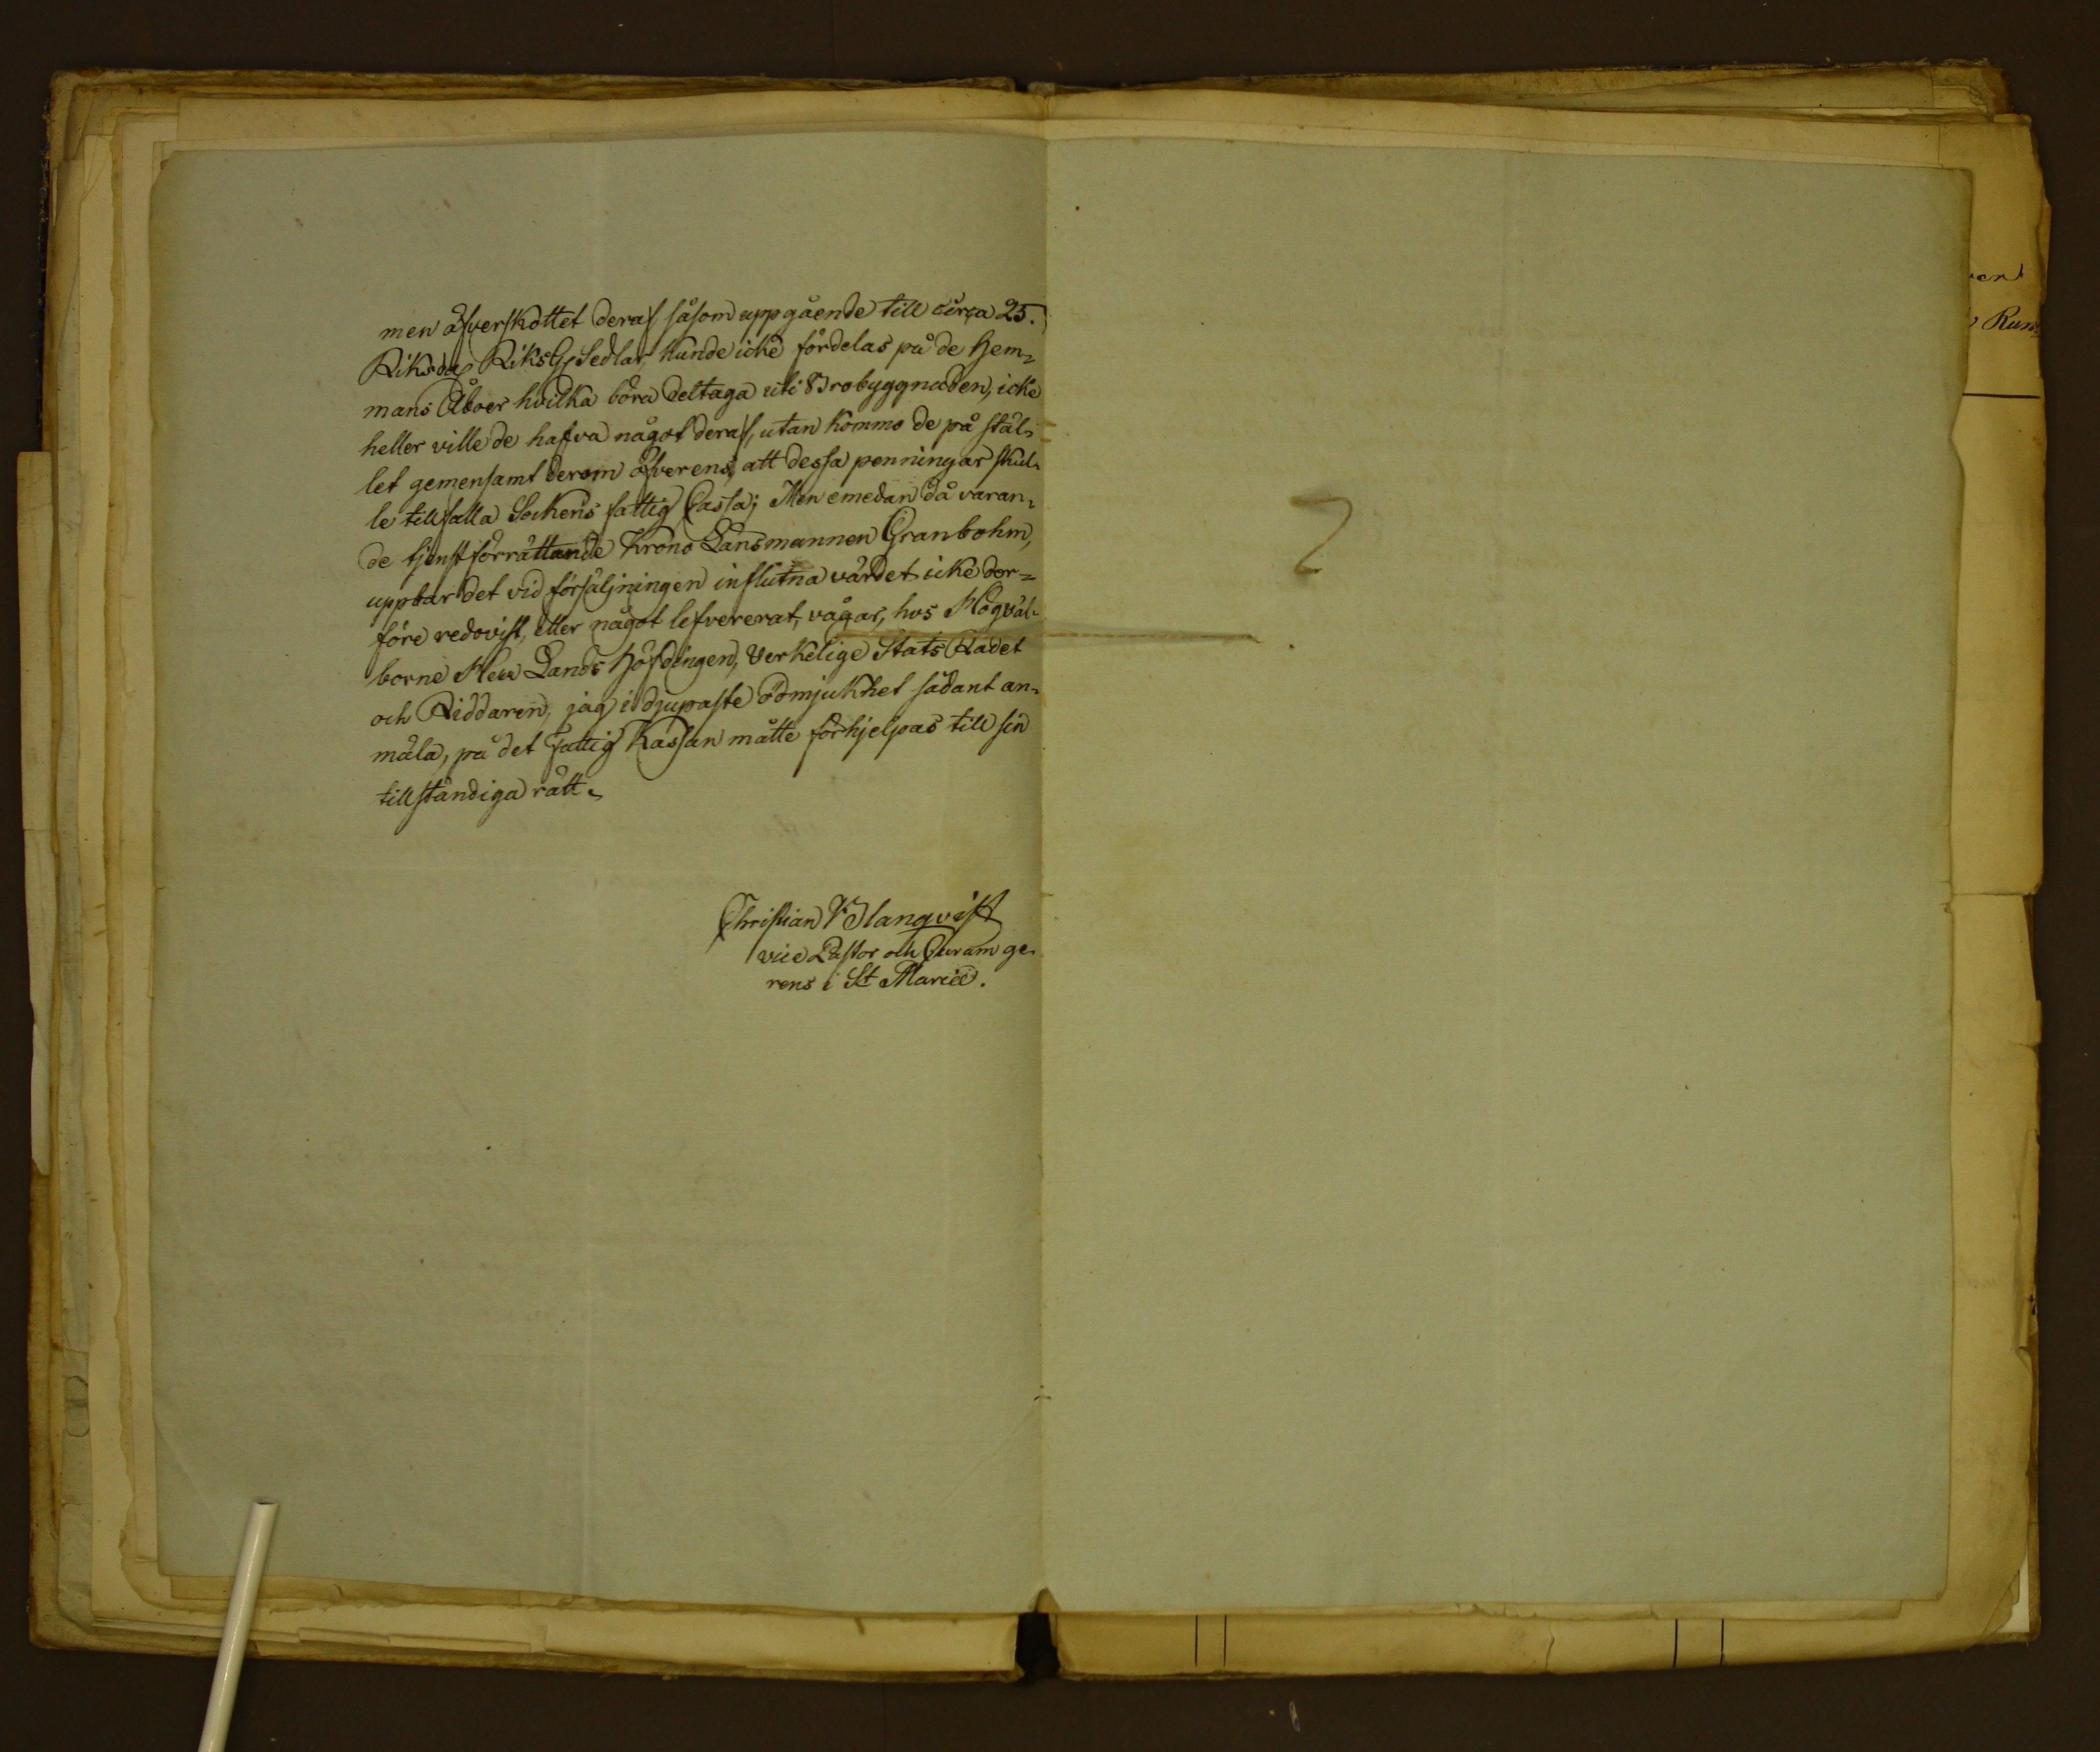 men öfverskottet deraf såsom uppgående till circa 25.
Riksdr RiksGs Sedlar, kunde icke fördelas på de Hem=
mans Åboer hvilka böra deltaga uti Brobyggnaden, icke
heller ville de hafva något deraf, utan kommo de på stäl=
let gemensamt derom öfverens, att dessa penningar skul=
le tillfalla Sockens fattig Cassa; Men emedan då varan=
de tjenstförrättande Krono Länsmannen Granbohm,
uppbar det vid försäljningen influtna värdet icke der=
före redovist, eller något lefvererat, vågar, hos Högväl=
borne Herr Lands Höfdingen, Verkelige Stats Rådet
och Riddaren, jag i djupaste ödmjukhet sådant an=
mäla, på det Fattig Kassan måtte förhjelpas till sin
tillständiga rätt.
Christian V.
vice Pastor och Curam ge=
rens i St Mariæ.
2
Run=